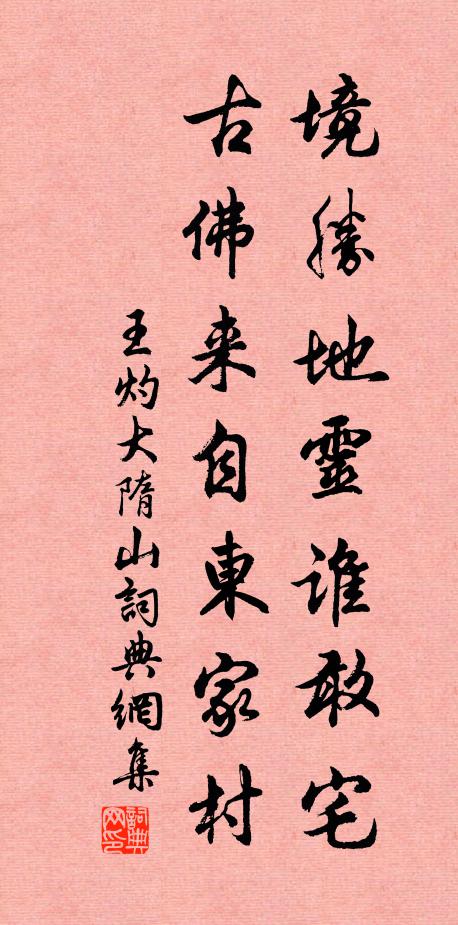 境勝地靈誰敢宅
古佛来自東家村
王灼大隋山詞典網集
詞典网印